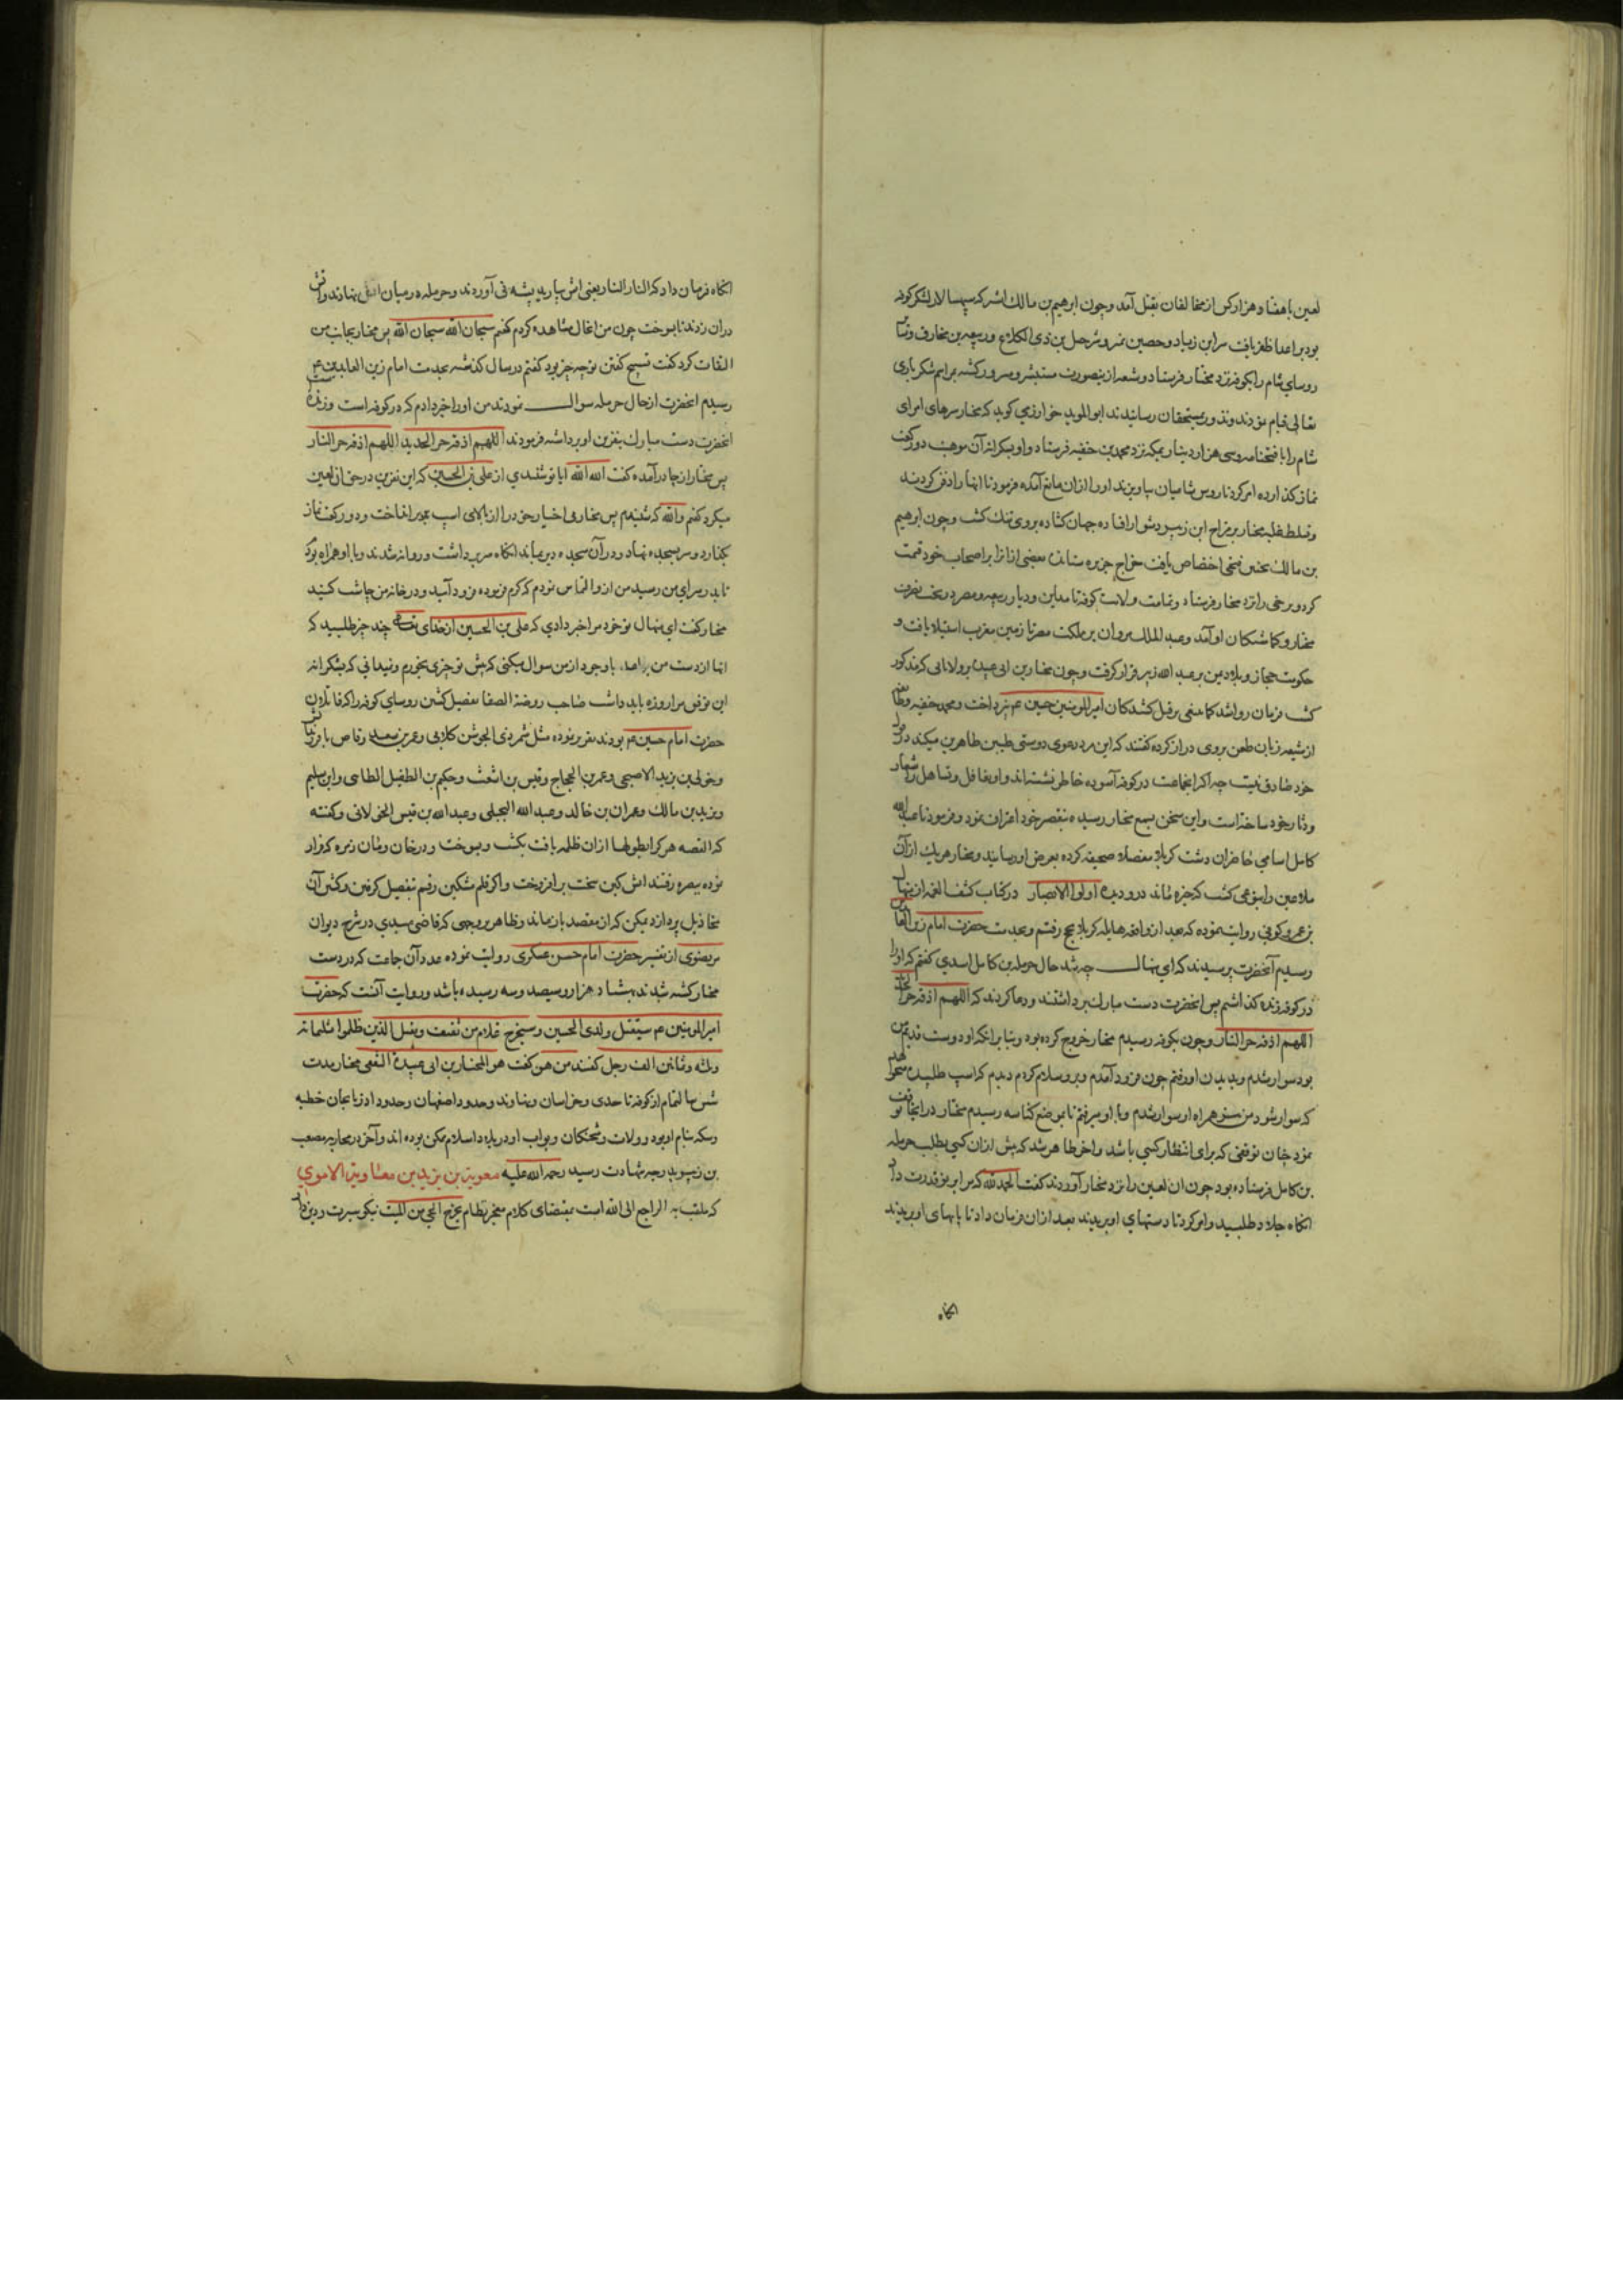 لعین باهفتاد هزار کس از مخالفان بقتل آمد و چون ابرهیم بن مالک اشتر که سپهسالار لشکر کوفه
بود بر اعدا ظفر یافت سر ابن زیاد و حصین نمیر و شرحبیل بن ذی الکلاع و ربیعه بن مخارق و
روسای شام را بکوفه نزد مختار فرستاد و شیعه ازینصورت مستبشر و مسرور کشته براسم شکر باری
تعالی قیام نمودند و نذور بمستحقان رسانیدند ابو الموید خوارزمی کوید که مختار سرهای امرای
شام را با فتحنامه و سی هزار دینار بمکه نزد محمد بن حنفیه فرستاد و او بشکرانه آن موهبت دو رکعت
نماز کذارده امر کرد تا روس شامیان بیاویزند او را ازان مانع آمده فرمود تا آنها را دفن کردند
و تسلط و غلبه مختار بر مزاج ابن زبیر دشوار افتاده جهان کشاده بروی تنک کشت و چون ابرهیم
بن مالک بچنین فتحی اختصاص یافت خراج جزیره ستانده بعضی ازانرا بر اصحاب خود قسمت
کرد و برخی را نزد مختار فرستاد و تمامت ولایت کوفه تا مداین و دیار ربیعه و مضر در تحت تصرف
مختار و کماشتکان او آمد و عبد الملک مروان بر مملکت مصر تا زمین مغرب استیلا یافت و
حکومت حجاز و بلاد یمن بر عبد الله زبیر قرار کرفت و چون مختار بن ابی عبیده بر ولاتی که مذکور
کشت فرمان روا شد کما ینبغی بر قتل کشندکان امیر المومنین حسین عم نپرداخت و محمد حنفیه و
از شیعه زبان طعن بروی دراز کرده کفتند که این مرد دعوی دوستی طیبین طاهرین میکند و در
خود صادق نیست چه اکر انجماعت در کوفه آسوده خاطر نشسته اند و او تغافل و تساهل را شعار
و دثار خود ساخته است و این سخن بسمع مختار رسیده بتقصیر خود اعتراف نمود و فرمود تا عبد الله
کامل اسامی حاضران دشت کربلا مفصلا صحیفه کرده بعرض او رسانید و مختار هر یک ازان
ملاعین را بنوعی کشت که خیره ماند درو دیده اولو الابصار در کتاب کشف الغمه از منهال
بن عمرو کوفی روایت نموده که بعد از واقعه هایله کربلا بحج رفتم و بخدمت حضرت امام زین العابدین
رسیدم آنحضرت پرسیدند که ای منهال چه شد حال حرمله بن کامل اسدی کفتم که او را
در کوفه زنده کذاشتم پس انحضرت دست مبارک برداشتند و دعا کردند که اللهم اذقه حر الحدید
اللهم اذقه حر النار و چون بکوفه رسیدم مختار خروج کرده بود و بنا برانکه او دوست قدیم من
بود سوار شدم و بدیدن او رفتم چون فرود آمدم و برو سلام کردم دیدم که اسپ طلبیده میخواهد
که سوار شود من نیز همراه او سوار شدم و با او میرفتم تا بموضع کناسه رسیدم مختار در انجا توقف
نمود چنان توقفی که برای انتظار کسی باشد و آخر ظاهر شد که پیش ازان کسی بطلب حرمله
بن کامل فرستاده بود چون ان لعین را نزد مختار آوردند کفت الحمد لله که مرا بر تو قدرت داد
انکاه جلاد طلبید و امر کرد تا دستهای او بریدند بعد ازان فرمان داد تا پاهای او بریدند
انکاه
انکاه فرمان داد که النار النار یعنی اتش بیارید پشته نی آوردند و حرمله در میان آن نهادند و اتش
دران زدند تا بسوخت چون من انحال مشاهده کردم کفتم سبحان الله سبحان الله پس مختار بجانب من
التفات کرد کفت تسبیح کفتن تو چه چیز بود کفتم در سال کذشته بخدمت امام زین العابدین عم
رسیدم انحضرت از حال حرمله سوال نمودند من او را خبر دادم که در کوفه است و زنده است
انحضرت دست مبارک بنفرین او برداشته فرمودند اللهم اذقه حر الحدید اللهم اذقه حر النار
پس مختار از جا درآمده کفت الله الله ایا تو شنیدی از علی بن الحسین که این نفرین در حق ان لعین
میکرد کفتم والله که شنیدم پس مختار بی اختیار خود را از بالای اسپ بزیر انداخت و دو رکعت نماز
بکذارد و سر بسجده نهاد و در آن سجده دیر بماند انکاه سر برداشت و روانه شدند و با او همراه بودم
تا بدر سرای من رسید من ازو التماس نمودم که کرم فرموده فرود آئید و در خانه من چاشت کنید
مختار کفت ای منهال تو خود مرا خبر دادی که علی بن الحسین از خدای تعالی چند چیز طلبید که
انها از دست من برآمد، با وجود ازمن سوال میکنی که پیش تو چیزی بخورم و نمیدانی که بشکرانه
این توفیق مرا روزه باید داشت صاحب روضة الصفا تفصیل کشتن روسای کوفه را که قاتلان
حضرت امام حسین عم بودند تقریر نموده مثل شمر ذی الجوشن کلابی و عمر بن سعد وقاص با
و خولی بن یزید الاصبحی و عمر بن الحجاج و قیس بن اشعث و حکیم بن الطفیل الطائی و ابن سلیم
و یزید بن مالک و عمران بن خالد و عبد الله البجلی و عبد الله بن قیس الخولانی و کفته
که القصه هر کرا بطولها ازان ظلمه یافت بکشت و بسوخت و در خان و مان زمره که فرار
نموده ببصره رفتند اتش کین سخت برافروخت و اکر قلم مشکین رقم بتفصیل کرفتن و کشتن آن
مخاذیل پردازد یمکن که از مقصد باز بماند و ظاهر بر وجهی که قاضی میبدی در شرح دیوان
مرتضوی از تفسیر حضرت امام حسن عسکری روایت نموده عدد آن جماعت که در دست
مختار کشته شدند بهشتاد هزار و سیصد و سه رسیده باشد و روایت آنست که حضرت
امیر المومنین عم سیقتل ولدی الحسین و سیخرج غلام من ثقیف و یقتل الذین ظلموا ثلثمائه
و ثلثه و ثمانین الف رجل کفتند من هو کفت هو المختار بن ابی عبیدة الثقفی مختار مدت
شش سال تمام از کوفه تا حدی و خراسان و نهاوند و حدود اصفهان و حدود آذربایجان خطبه
و سکه بنام او بود و ولات و شحنکان و نواب او در بلاد اسلام ممکن بوده اند و آخر در محاربه مصعب
بن زبیر بدرجه شهادت رسید رحمة الله علیه معویة بن یزید بن معاویة الاموی
که ملقب به الراجع الی الله است بمقتضای کلام معجز نظام یخرج الحی من المیت نیکو سیرت و دیندار